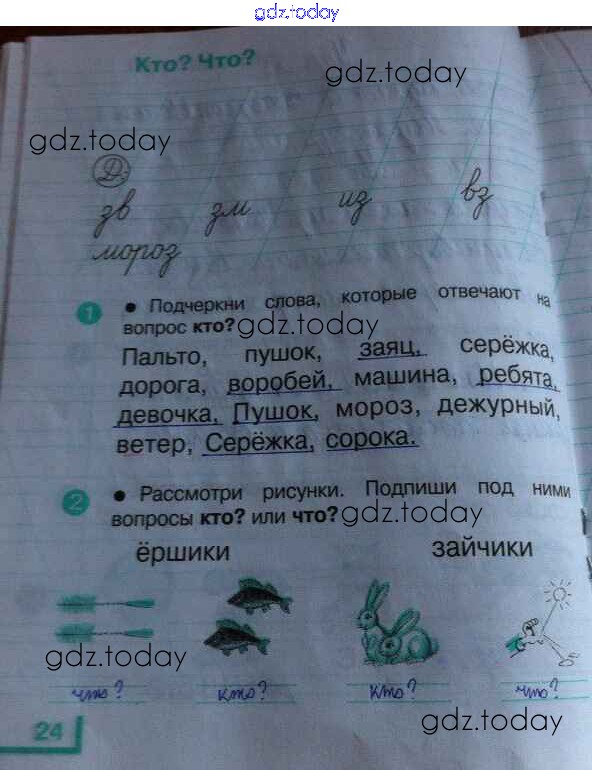 gdz.today
Кто? Что?
gdz.today
gdz.today
Д:
зв зм из вз
мороз
1 • Подчеркни слова, которые отвечают на
вопрос кто? gdz.today
Пальто, пушок, заяц, серёжка,
дорога, воробей, машина, ребята,
девочка, Пушок, мороз, дежурный,
ветер, Серёжка, сорока.
2 • Рассмотри рисунки. Подпиши под ними
вопросы кто? или что? gdz.today
ёршики зайчики
gdz.today
что? кто? кто? что?
gdz.today
24